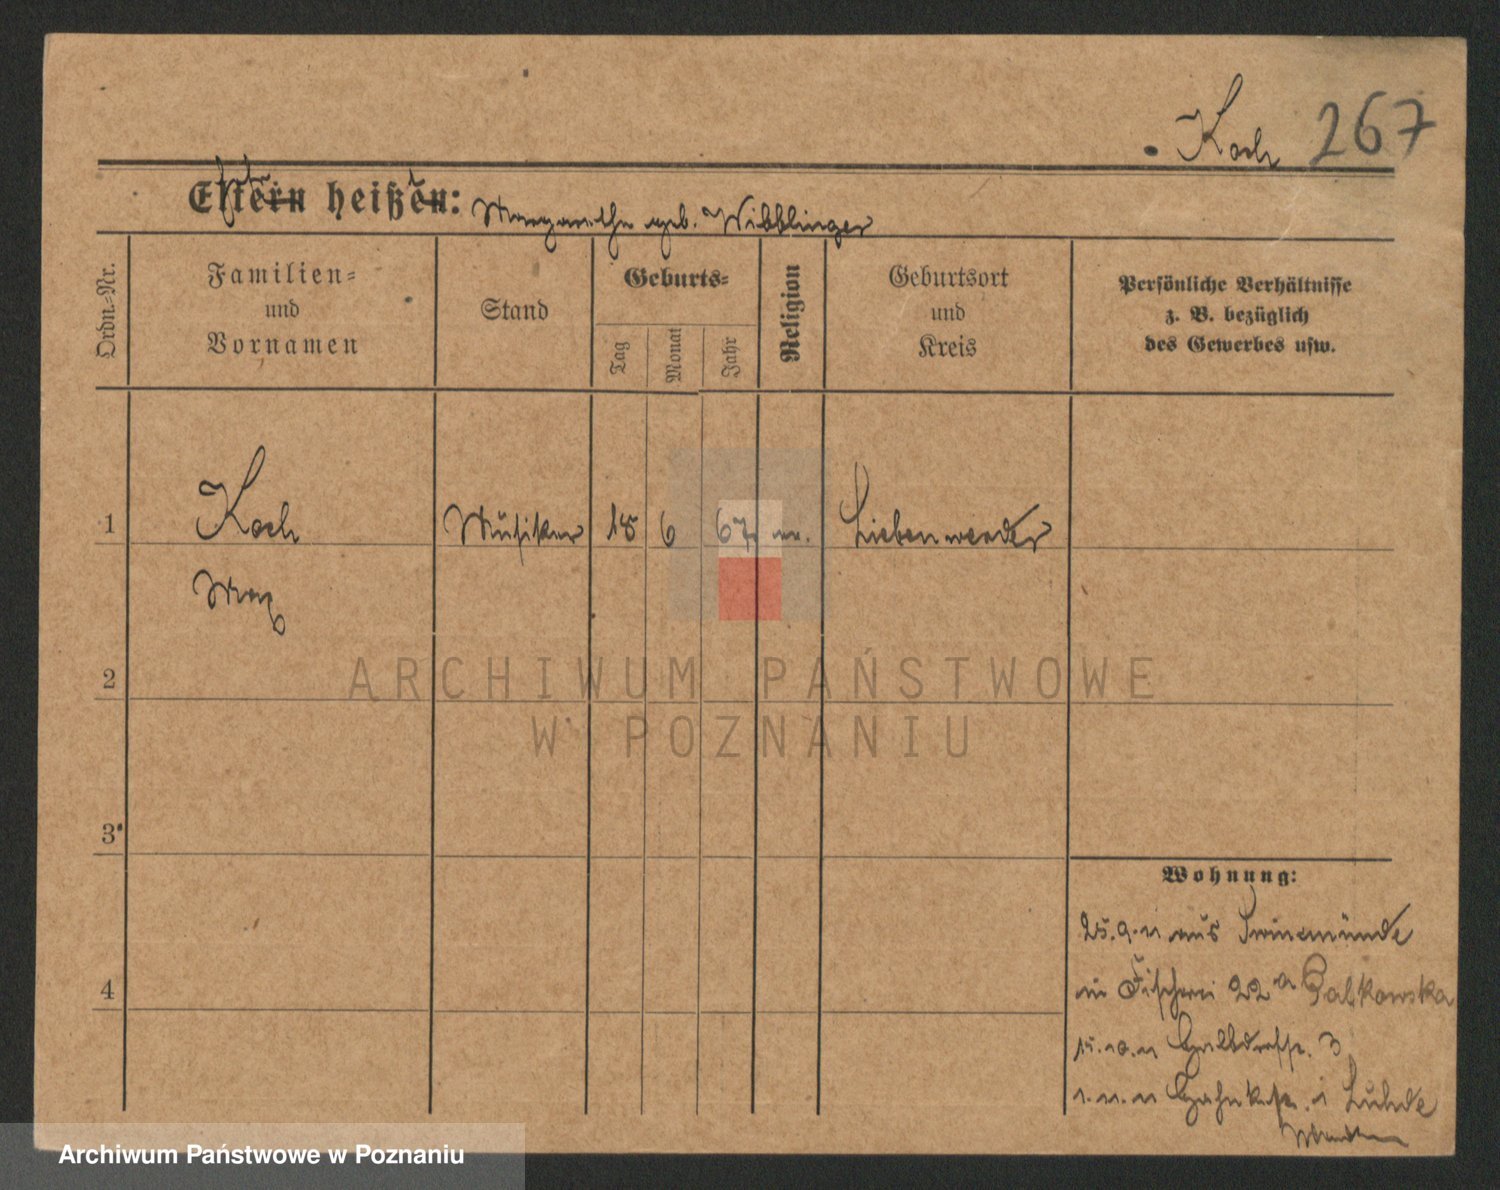 Koch 267
Eltern heißen: Margarethe geb. Wibblinger
Ordn.-Nr.
Familien-
und
Vornamen
Stand
Geburts-
Tag
Monat
Jahr
Religion
Geburtsort
und
Kreis
Persönliche Verhältnisse
z. B. bezüglich
des Gewerbes usw.
1 Koch Musiker 18 6 67 ev. Liebenwerder
Max
2
3
4
ARCHIWUM PAŃSTWOWE
W POZNANIU
Wohnung:
25.9.11 aus Swinemünde
in Fischerei 22a Galkowska
15.10.11 Halbdorfstr. 3
1.11.11 Luhde
Archiwum Państwowe w Poznaniu